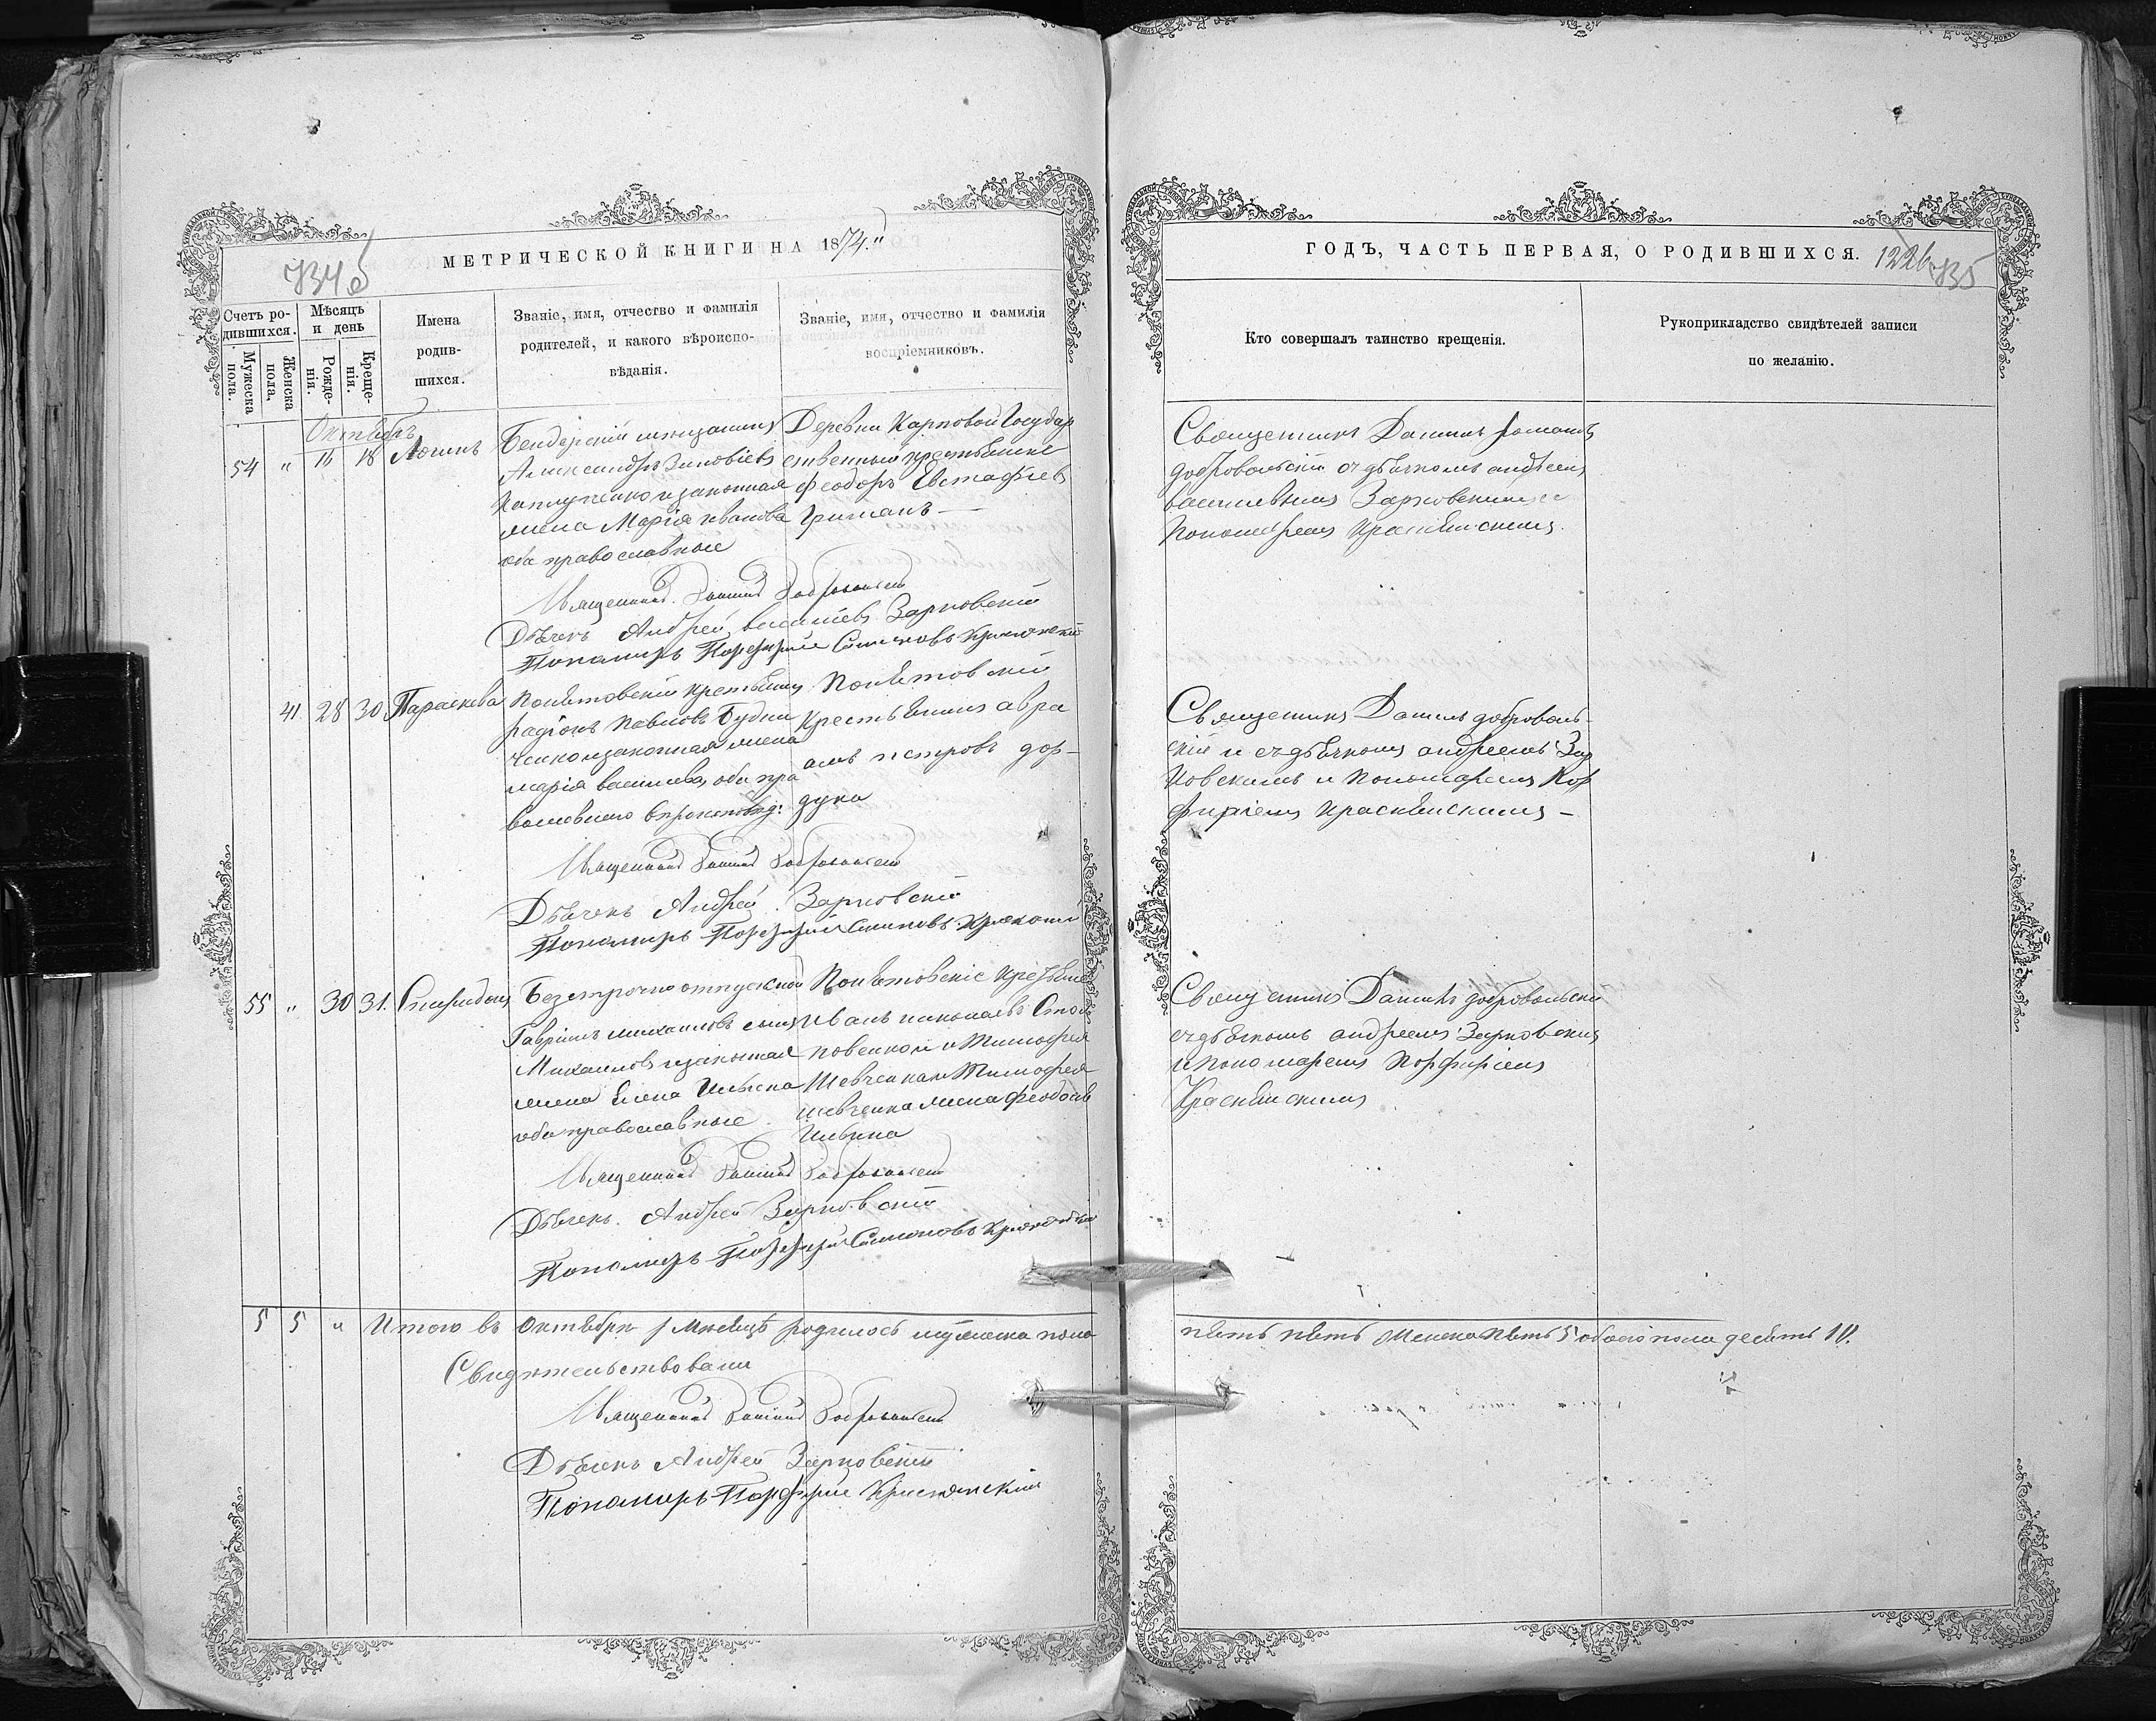 МЕТРИЧЕСКОЙ КНИГИ НА 1874."
Счетъ ро-
дившихся.
Мужеска
пола.
Женска
пола,
Мѣсяцъ
и день
Рожде-
нія.
Креще-
нія.
Имена
родив-
шихся.
Званіе, имя, отчество и фамилія
родителей, и какого вѣроиспо-
вѣданія.
Званіе, имя, отчество и фамилія
воспріемниковъ.
Октябрь
54 " 16 18
Бендерскій мещанинъ
Александръ Зиновіевъ
и законная
жена Марія Иванова
оба православные
Деревни Карповой Государ
ственный крестьянинъ
Феодоръ Евстафіевъ
Гриманъ
Священникъ Даниилъ Добровольскій
Дьячекъ Андрей Васильевъ Зарновскій
Пономарь Порфирій Симоновъ
41 28 30 Параскева
крестьянинъ
радіонъ Павловъ Будни
ченко изаконная жена
марія васильева, оба пра
крестьянинъ авра
амъ петровъ дор-
дука
Священникъ Даниилъ Добровольскій
Дьячекъ Андрей Зарновскій
Пономарь Порфирій Симоновъ
55 " 30 31. Спиридонъ
Безсрочно отпускной
Гавріилъ михаиловъ сынъ
Михаиловъ изаконная
жена Елена Ильина
оба православные
Иванъ николаевъ Степа
повенкой и Тимофея
Шевченка Тимофея
шевченка жена феодосія
Ильина
Священникъ Даниилъ Добровольскій
Дьячекъ Андрей Зарновскій
Пономарь Порфирій Симоновъ
5 5 " Итого въ Октябрѣ Месяцѣ родилось мужеска пола
Свидѣтельствовали
Священникъ Даниилъ Добровольскій
Дьячекъ Андрей Зарновскій
Пономарь Порфирій
ГОДЪ, ЧАСТЬ ПЕРВАЯ, О РОДИВШИХСЯ.
Кто совершалъ таинство крещенія.
Рукоприкладство свидѣтелей записи
по желанію.
Священникъ Даниилъ романовъ
добровольскій съ дьячкомъ андреемъ
васильевымъ Зарновскимъ и
Пономаремъ Краснянскимъ.
Священникъ Даниилъ доброволь-
скій и съ дьячкомъ андреемъ Зар
новскимъ и пономаремъ Пор
фиріемъ краснянскимъ –
Священникъ Даниилъ добровольскій
съ дьячкомъ андреемъ Зарновскимъ
и пономаремъ Порфиріемъ
Краснянскимъ
пять женска пять 5 обоего пола десять 10.